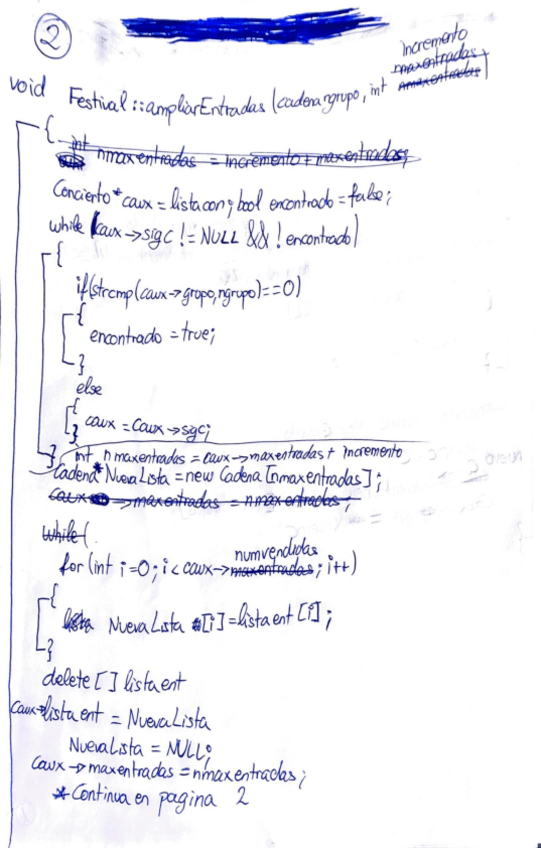 2
Incremento
maxentradas,
nmaxentradas
void Festival::ampliarEntradas (cadena ngrupo, int )
{
int nmaxentradas = Incremento + maxentradas;
Concierto* caux = listacon; bool encontrado = false;
while (caux->sigc != NULL && ! encontrado)
{
if(strcmp(caux->grupo,ngrupo)==0)
{
encontrado = true;
}
else
{
} caux = Caux->sgc;
} int nmaxentradas = caux->maxentradas + Incremento
Cadena* NuevaLista = new Cadena [nmaxentradas];
caux->maxentradas = nmaxentradas;
while(
numvendidas
for (int i=0; i < caux->maxentradas; i++)
{
lista NuevaLista [i] = listaent [i];
}
delete[] listaent
Caux->listaent = NuevaLista
NuevaLista = NULL;
caux->maxentradas = nmaxentradas;
* Continua en pagina 2